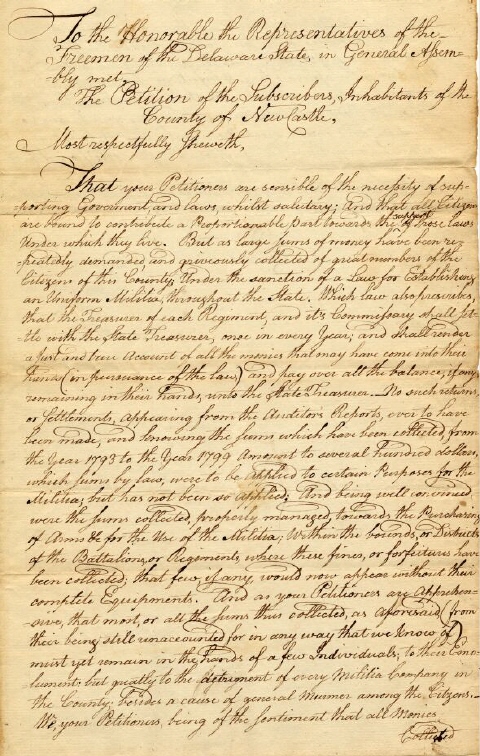 To the Honorable the Representatives of the
Freemen of the Delaware State, in General Assem-
bly met,
The Petition of the Subscribers, Inhabitants of the
County of New Castle,
Most respectfully Sheweth,
That your Petitioners are sensible of the necessity of sup-
porting Goverment, and laws, whilst salutary; And that all Citizens
are bound to contribute a Proportionable part towards the support of those laws
Under which they live. But as large sums of money have been re-
peatedly demanded and grievously collected of great numbers of the
Citizens of this County Under the sanction of a Law for Establishing
an Uniform Militia, throughout the State. Which law also prescribes,
that the Treasurer of each Regiment, and it's Commessary shall set-
tle with the State Treasurer, once in every Year, and shall render
a just and true Account of all the monies that may have come into their
hands (in persuance of the law,) and pay over all the balance, if any
remaining in their hands, unto the State Treasurer. No such returns,
or Settlements, appearing from the Auditors Reports, ever to have
been made, and knowing the sums which have been collected, from
the Year 1793 to the Year 1799 Amount to several Hundred dollars,
which sums by law, were to be applied to certain Purposes for the
Militia; but has not been so applied; And being well convinced
were the sums collected, properly managed towards the Purchasing
of Arms &c for the Use of the Militia, Within the bounds, or Districts
of the Battalions, or Regiments, where these fines, or forfeitures have
been collected; that few, if any, would now appear without their
complete Equipments. And as your Petitioners are Apprehen-
sive, that most, or all the sums thus collected, as aforesaid (from
their being still unaccounted for in any way that we know of)
must yet remain in the hands of a few Individuals, to their Emo-
lument; but greatly to the detriment of every Militia Company in
the County; besides a cause of general Murmer among the Citizens.
We, your Petitioners, being of the Sentiment that all Monies
Collected